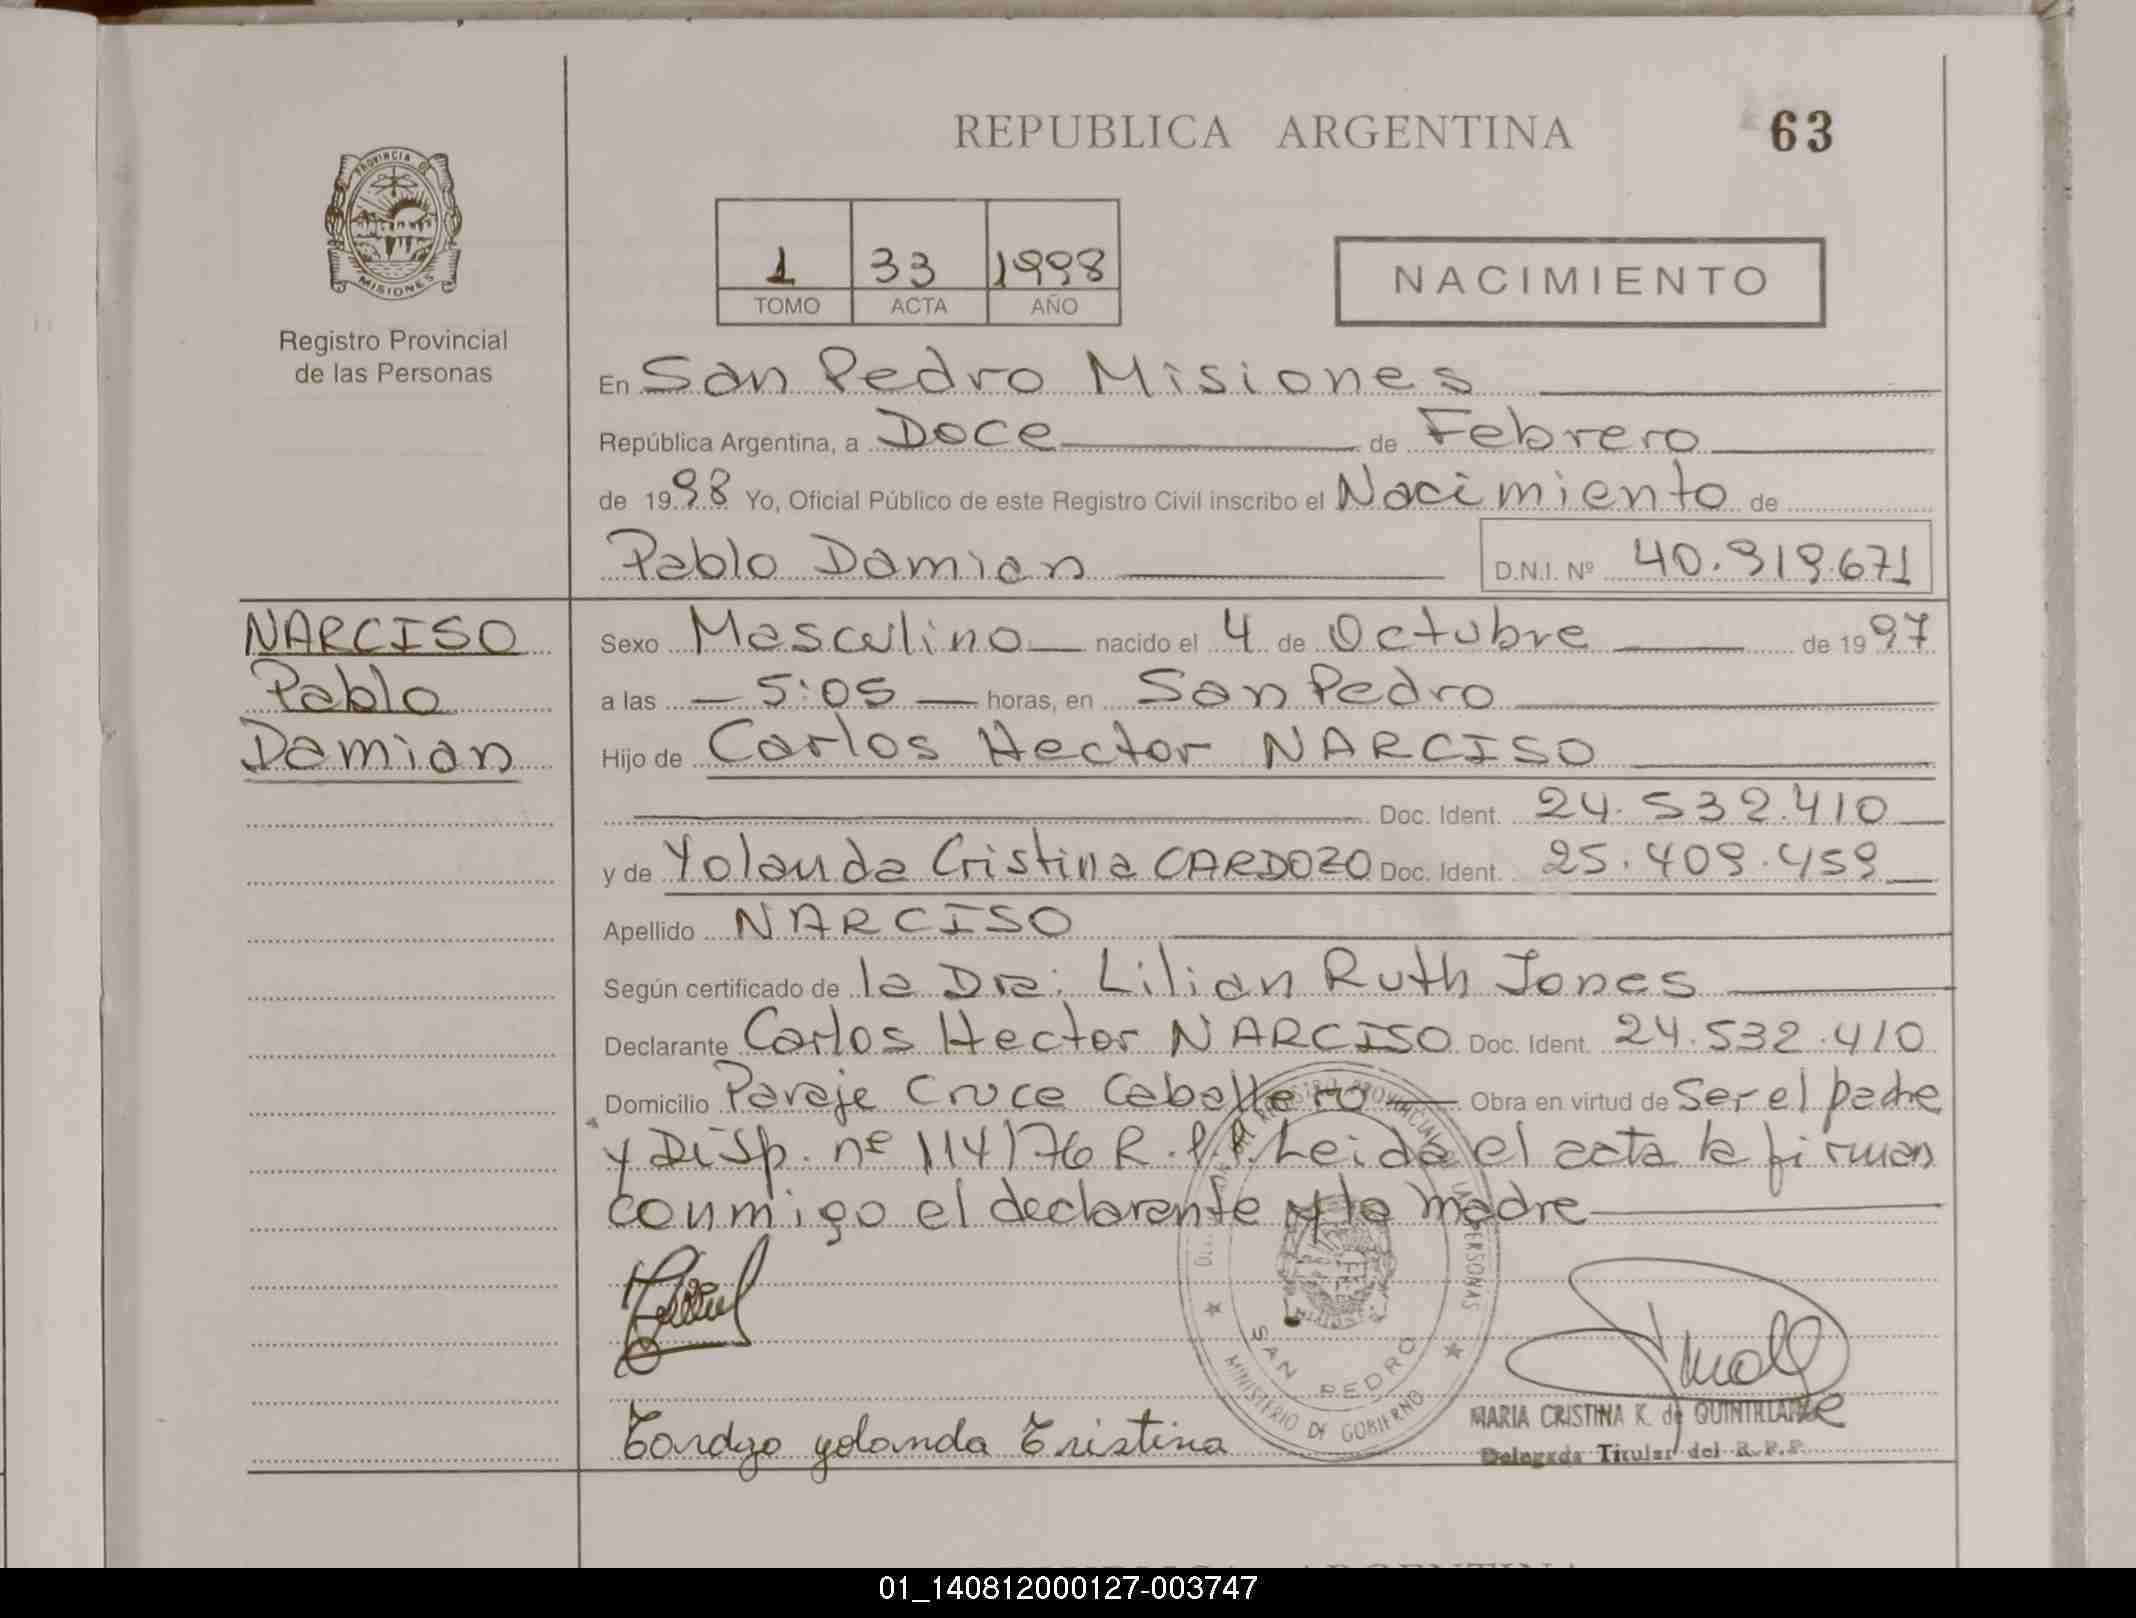 REPUBLICA ARGENTINA
63
PROVINCIA DE
MISIONES
Registro Provincial
de las Personas
1 33 1998
TOMO ACTA AÑO
NACIMIENTO
En San Pedro Misiones
República Argentina, a Doce de Febrero
de 1998 Yo, Oficial Público de este Registro Civil inscribo el Nacimiento de
Pablo Damian D.N.I. Nº 40.919.671
NARCISO
Pablo
Damian
Sexo Masculino nacido el 4 de Octubre de 1997
a las 5:05 horas, en San Pedro
Hijo de Carlos Hector NARCISO
Doc. Ident. 24.532.410
y de Yolanda Cristina CARDOZO Doc. Ident. 25.409.459
Apellido NARCISO
Según certificado de la Dra: Lilian Ruth Jones
Declarante Carlos Hector NARCISO Doc. Ident. 24.532.410
Domicilio Paraje Cruce Caballero Obra en virtud de Ser el padre
y Disp. nº 114/76 R.P.P. Leida el acta la firman
conmigo el declarante y la madre
SAN PEDRO
MINISTERIO DE GOBIERNO
Cardozo yolanda Cristina
MARIA CRISTINA K. de QUINTILLAN
Delegada Titular del R.P.P.
01_140812000127-003747